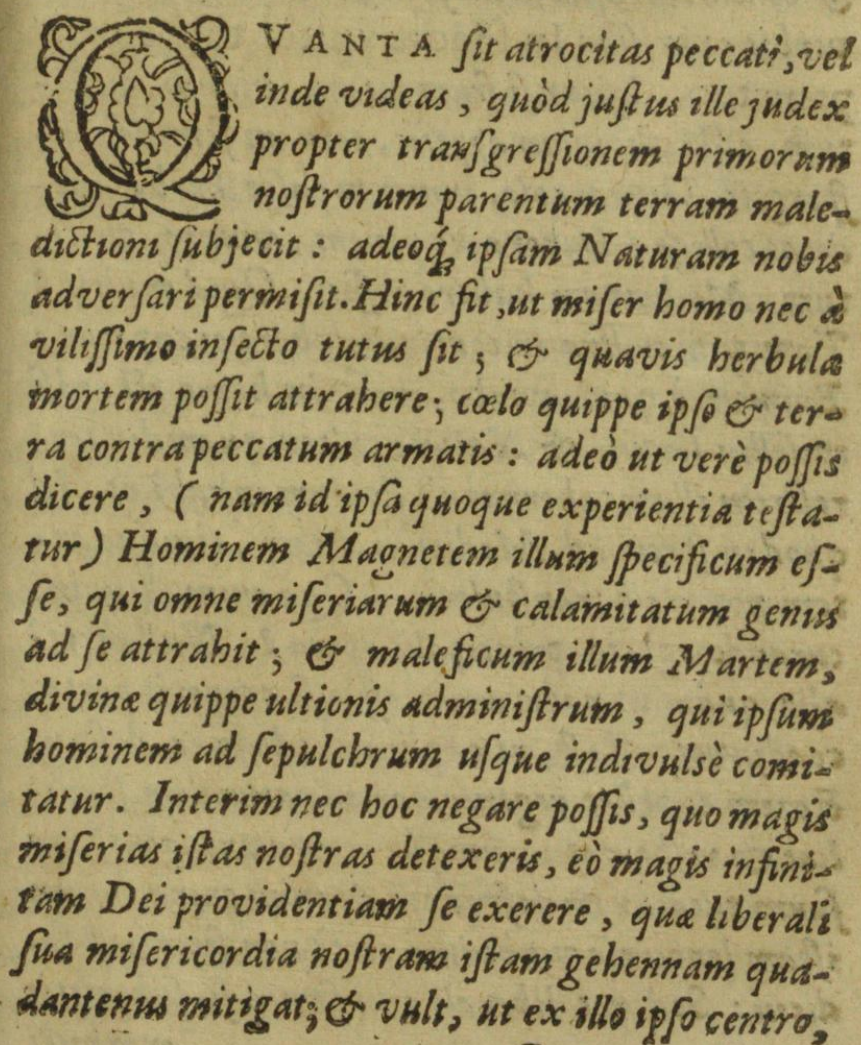 QVANTA ſit atrocitas peccati, vel
inde videas, quòd juſtus ille judex
propter tranſgreſſionem primorum
noſtrorum parentum terram male-
dictioni ſubjecit: adeoq́; ipſam Naturam nobis
adverſari permiſit. Hinc fit, ut miſer homo nec à
viliſſimo inſecto tutus ſit; & quavis herbula
mortem poſſit attrahere; cœlo quippe ipſo & ter-
ra contra peccatum armatis: adeò ut verè poſſis
dicere, (nam id ipſa quoque experientia teſta-
tur) Hominem Magnetem illum ſpecificum eſ-
ſe, qui omne miſeriarum & calamitatum genus
ad ſe attrahit; & maleficum illum Martem,
divinæ quippe ultionis adminiſtrum, qui ipſum
hominem ad ſepulchrum uſque indivulsè comi-
tatur. Interim nec hoc negare poſſis, quo magis
miſerias iſtas noſtras detexeris, eò magis infini-
tam Dei providentiam ſe exerere, quæ liberali
ſua miſericordia noſtram iſtam gehennam qua-
dantenus mitigat; & vult, ut ex illo ipſo centro,